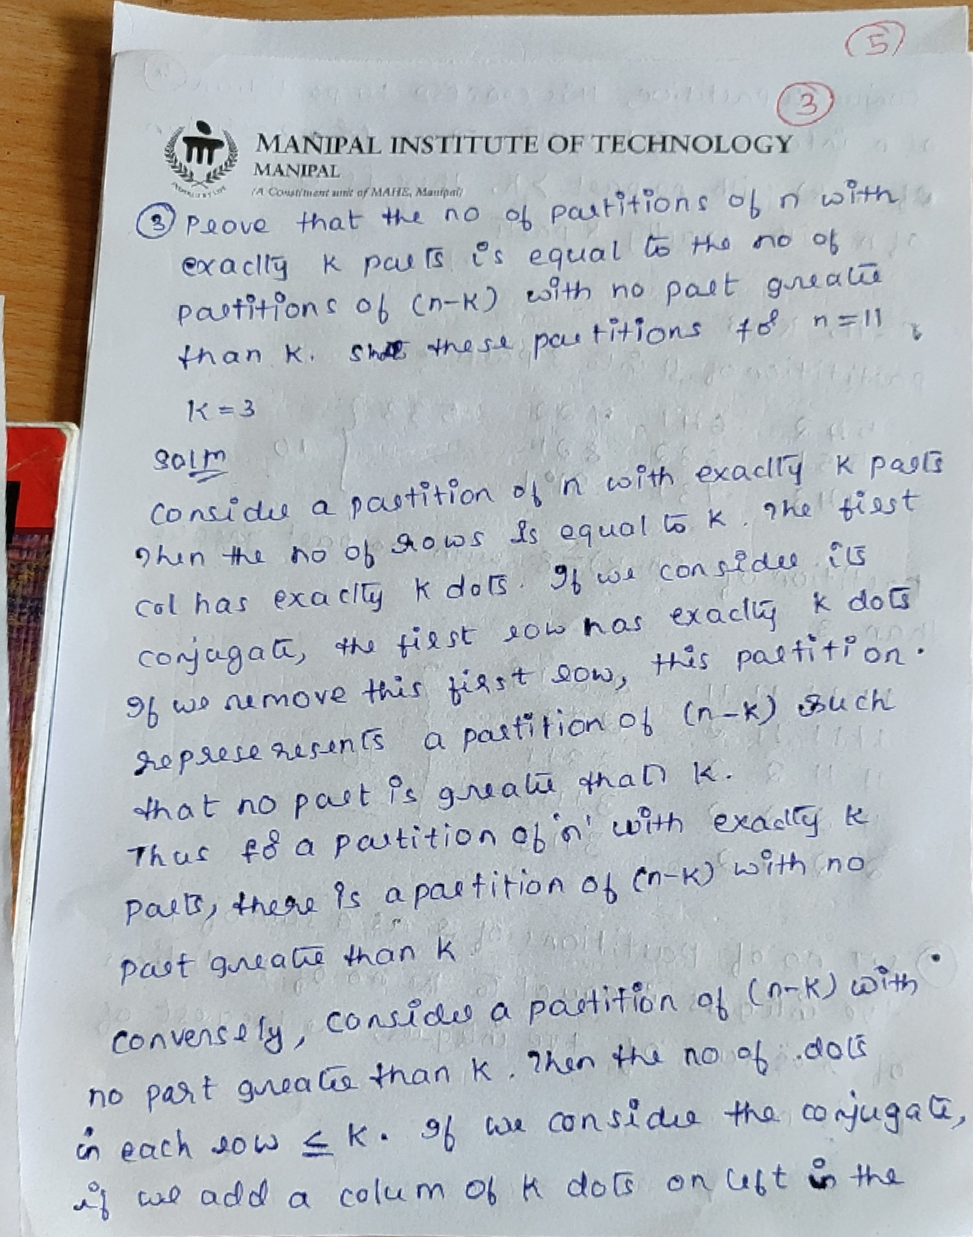 5
3
MANIPAL INSTITUTE OF TECHNOLOGY
MANIPAL
(A Constituent unit of MAHE, Manipal)
③ Prove that the no of partitions of n with
exactly K parts is equal to the no of
partitions of (n-K) with no part greater
than K. these partitions for n=11
K=3
Soln
Consider a partition of 'n with exactly K parts
Then the no of rows is equal to K. The first
col has exactly K dots. If we consider its
conjugate, the first row has exactly K dots
If we remove this first row, this partition.
represeresents a partition of (n-K) such
that no part is greater than K.
Thus for a partition of 'n' with exactly K
parts, there is a partition of (n-K) with no
part greater than K
Conversely, consider a partition of (n-K) with
no part greater than K. Then the no of dots
in each row ≤ K. If we consider the conjugate,
if we add a colum of K dots on left in the